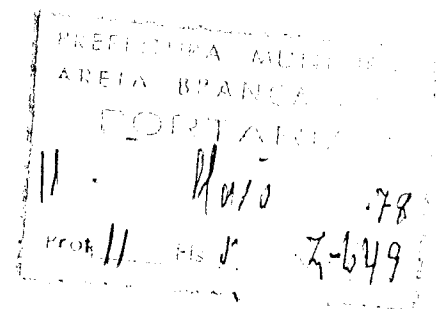 PREFEITURA MUNI
AREIA BRANCA
PORTARIA
11 . Maio .78
Prot 11 Fls Z-649